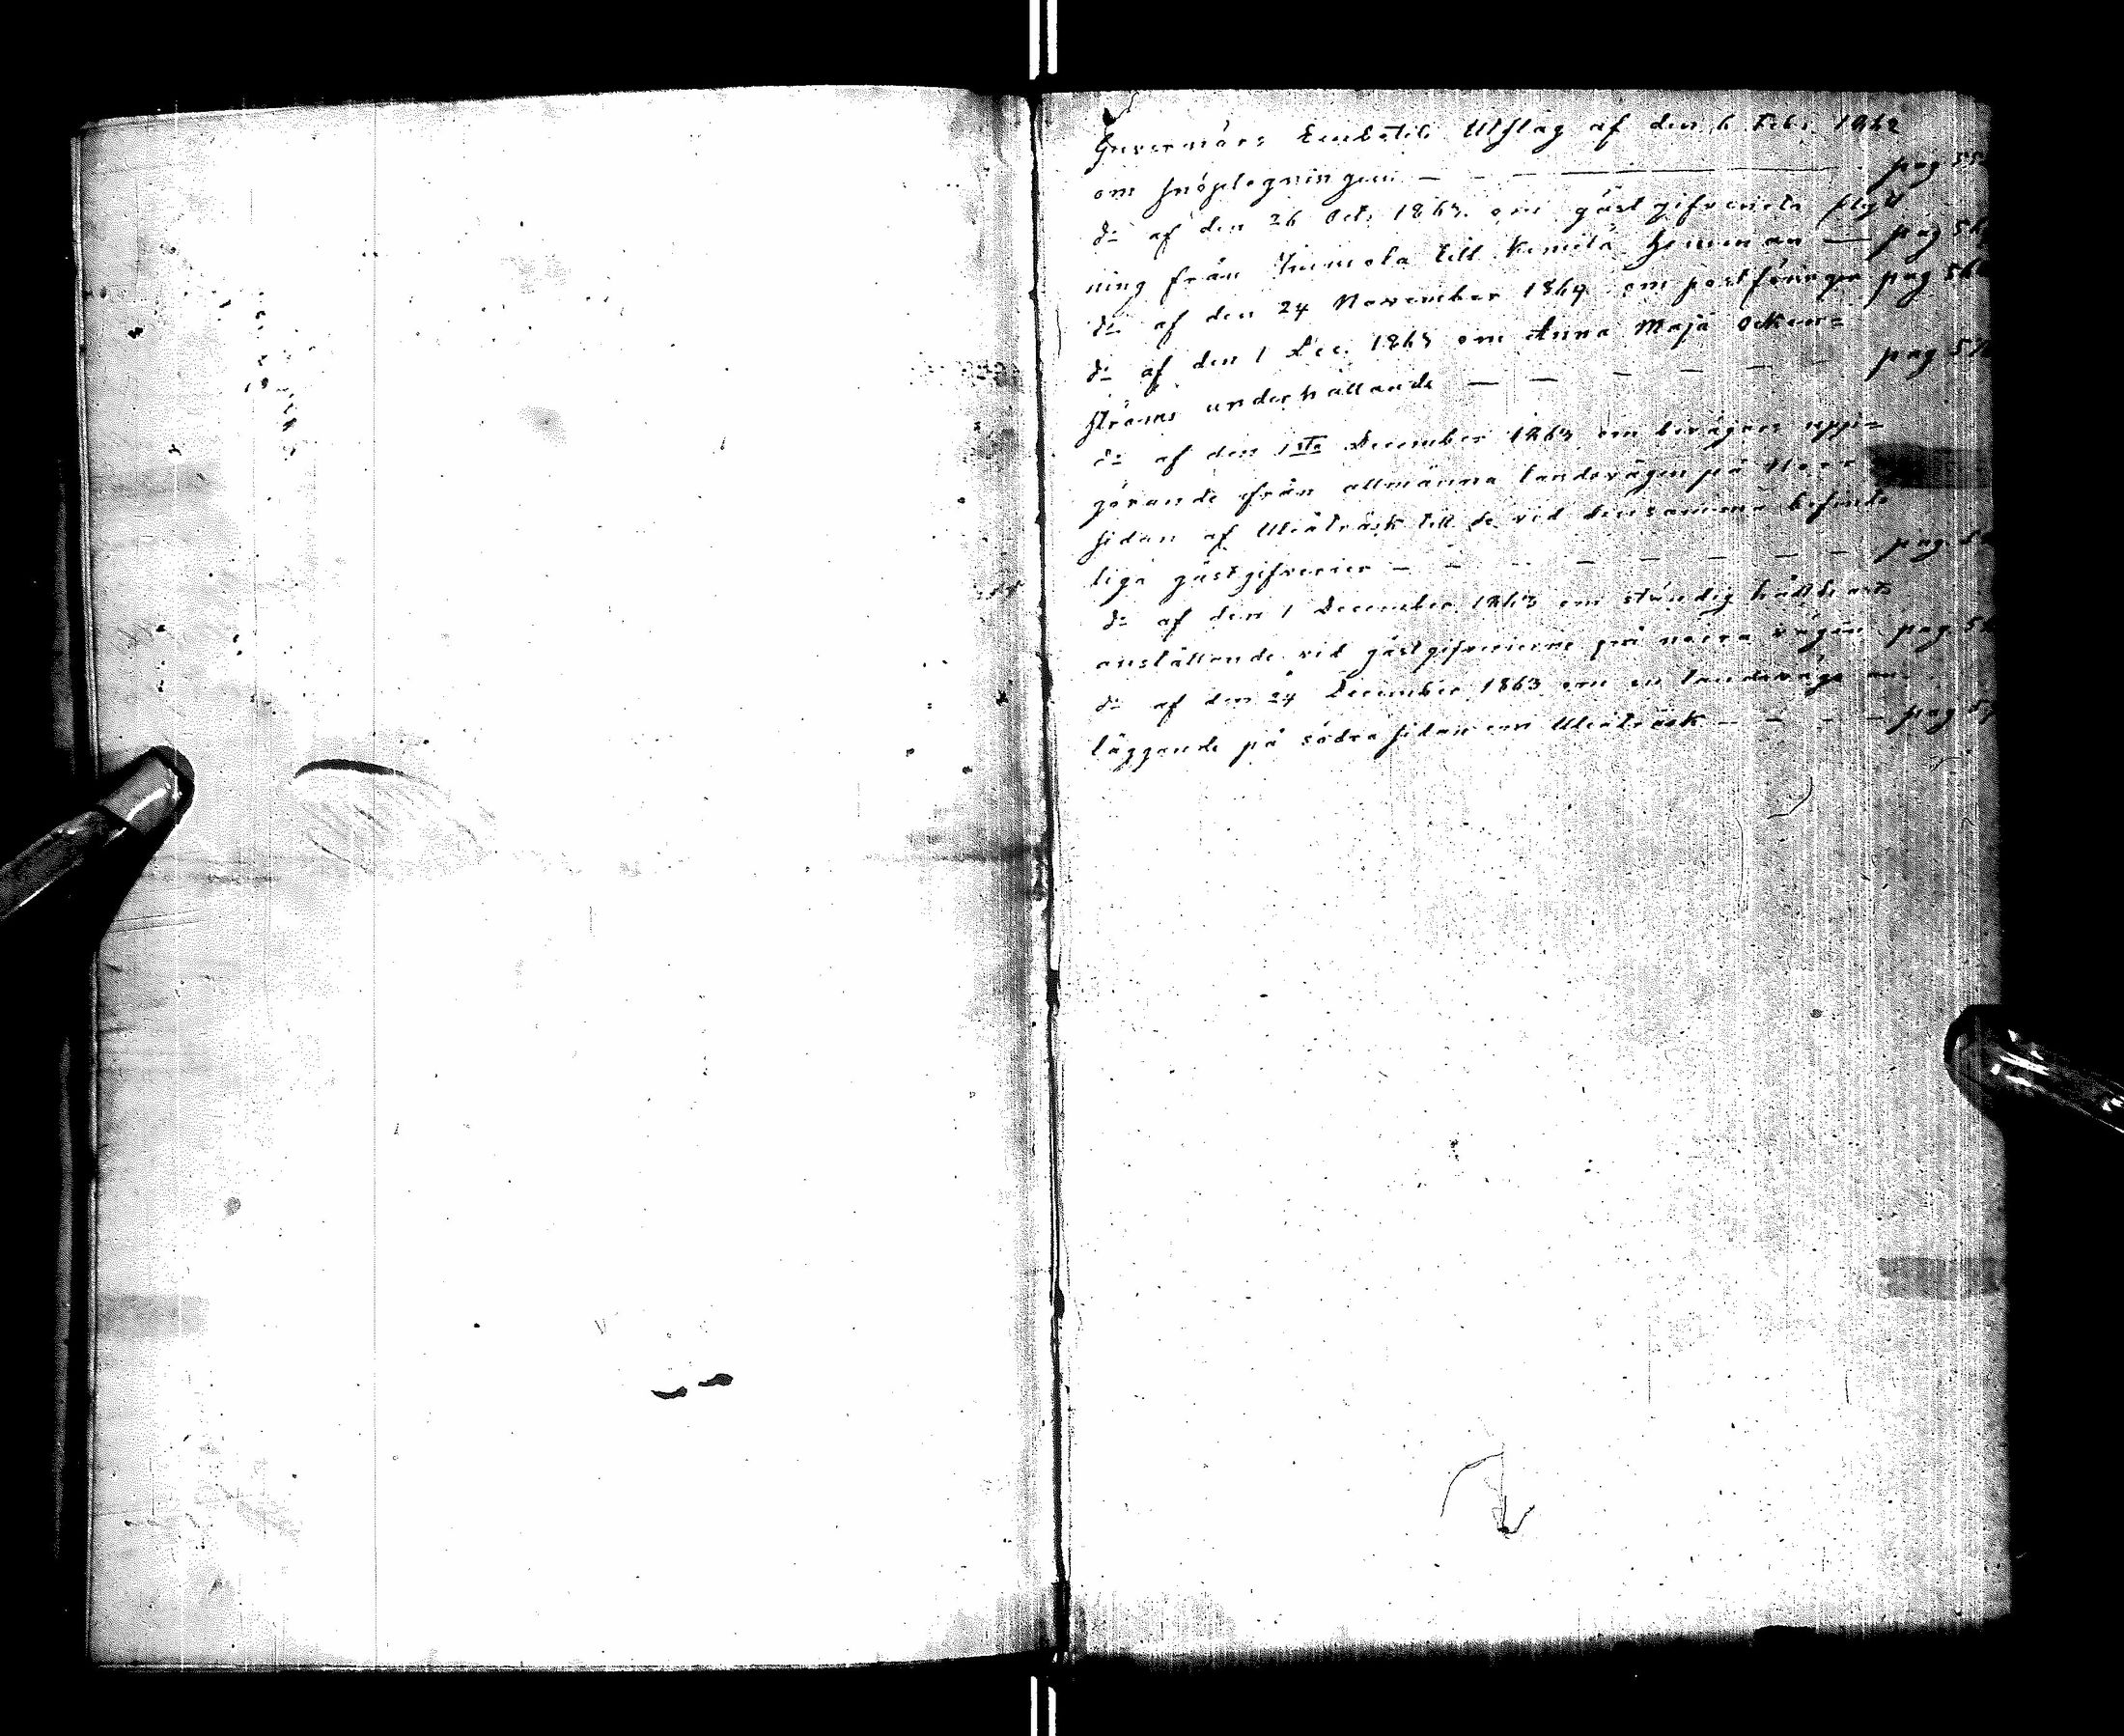 Guvernörs Embetets Utslag af den 6 Febr. 1862
om snöplogningen — — — pag 55
d:o af den 26 Oct. 1863. om gästgifveriets flytt
ning från Jumola till Kemilä Hemman — pag 56
d:o af den 24 November 1864 om postföringen pag 56
d:o af den 1 Dec. 1863 om Anna Maja Ocken=
ströms underhållande — — — — — — pag 57
d:o af den 1sta December 1863 om bivägars upp=
görande från allmänna landsvägen på Norr
sidan af Uleåträsk till de vid densamma befint
liga gästgifverier — — — — — — — pag.
d:o af den 1 December 1863 om ständig hållkarls
anställande vid gästgifverierne på norra vägen pag 5
d:o af den 24 December 1863 om en landsvägs an
läggande på södra sidan om Uleåträsk — — — — pag 5